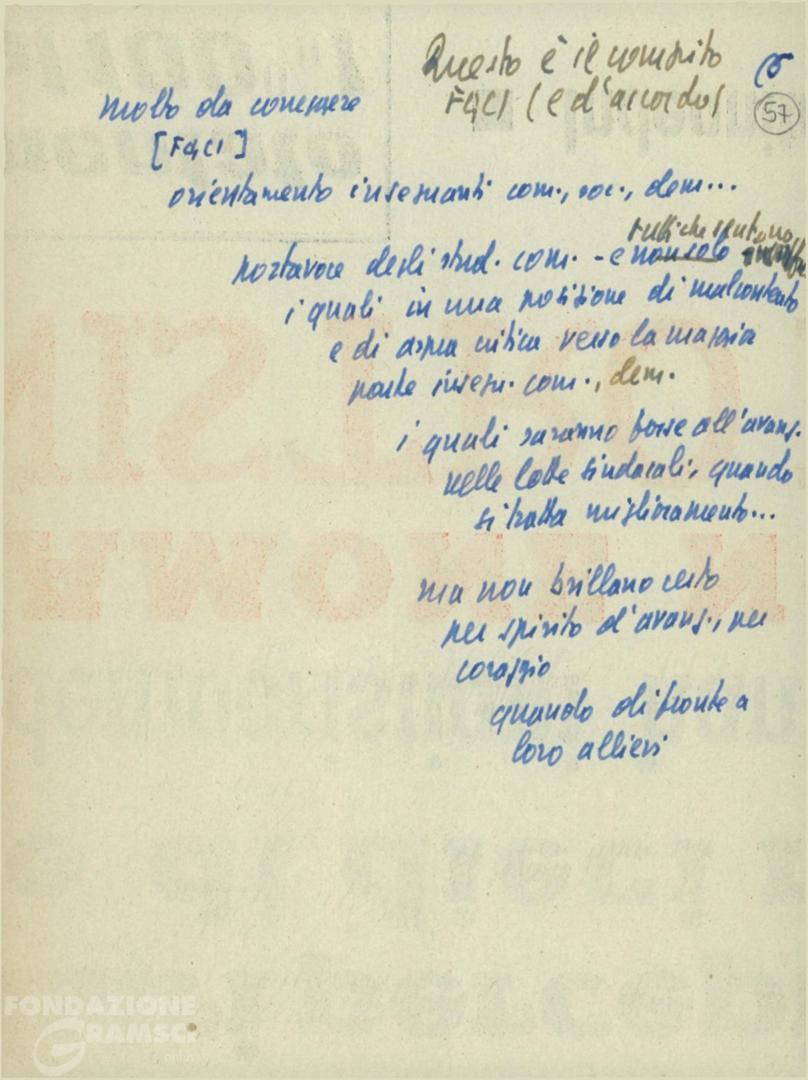 Questo è il compito
FGCI (e d'accordo)
57
Molto da correggere
[FGCI]
orientamento insegnanti com., soc., dem...
tutti che sentono
portavoce degli stud. com. - e non solo
i quali in una posizione di malcontento
e di aspra critica verso la maggior
parte insegn. com., dem.
i quali saranno forse all'avang.
nelle lotte sindacali, quando
si tratta miglioramento...
ma non brillano certo
per spirito d'avang., per
coraggio
quando di fronte a
loro allievi
FONDAZIONE
GRAMSCI